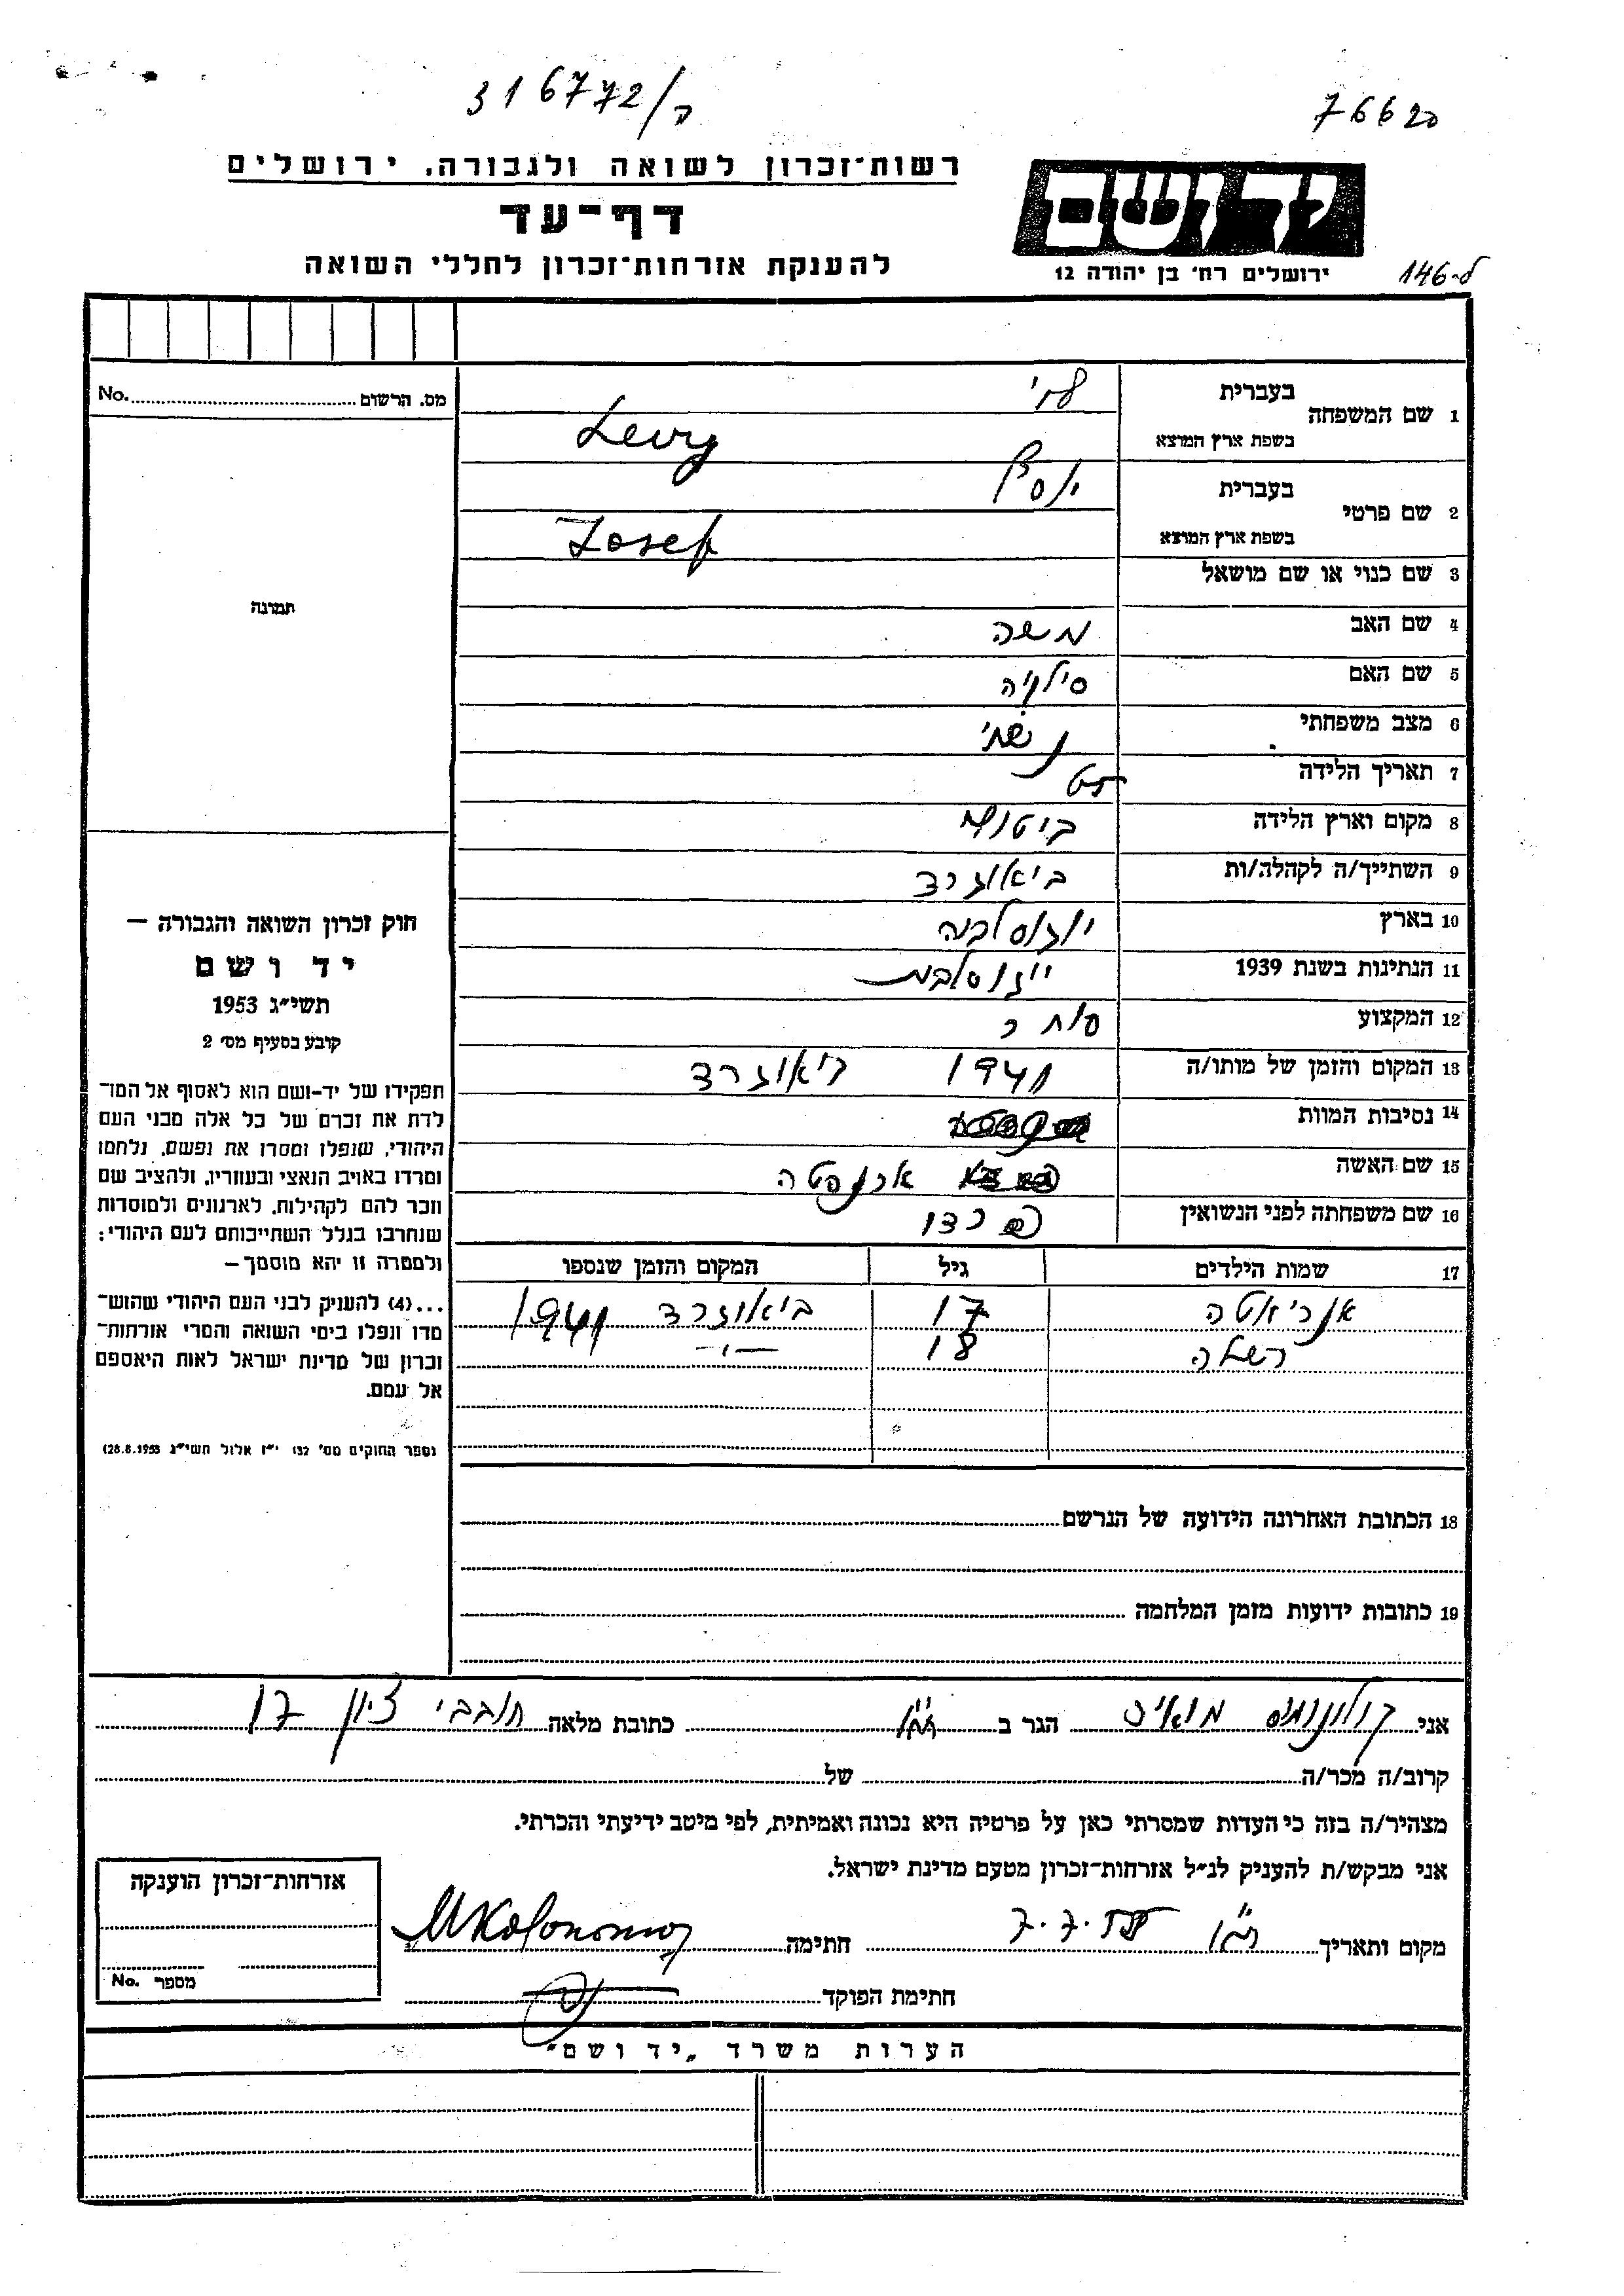 316772/ה
76620
רשות־זכרון לשואה ולגבורה, ירושלים
דף־עד
להענקת אזרחות־זכרון לחללי השואה
יד ושם
ירושלים רח' בן יהודה 12
ל-146
No. מס. הרשום
1 שם המשפחה בעברית לוי
בשפת ארץ המוצא Levy
2 שם פרטי בעברית יוסף
בשפת ארץ המוצא Josef
3 שם כנוי או שם מושאל
תמונה
4 שם האב משה
5 שם האם
6 מצב משפחתי נשוי
7 תאריך הלידה
8 מקום וארץ הלידה ביטולי
9 השתייך/ה לקהלה/ות ביאוגרד
10 בארץ יוגוסלביה
11 הנתינות בשנת 1939 יוגוסלבית
12 המקצוע סוחר
13 המקום והזמן של מותו/ה 1941 ביאוגרד
14 נסיבות המוות
15 שם האשה
16 שם משפחתה לפני הנשואין
17 שמות הילדים גיל המקום והזמן שנספו
אנריאטה 17 ביאוגרד 1941
רשלה 18 -"-
חוק זכרון השואה והגבורה —
יד ושם
תשי״ג 1953
קובע בסעיף מס׳ 2
תפקידו של יד־ושם הוא לאסוף אל המו־
לדת את זכרם של כל אלה מבני העם
היהודי, שנפלו ומסרו את נפשם, נלחמו
ומרדו באויב הנאצי ובעוזריו, ולהציב שם
וזכר להם לקהילות, לארגונים ולמוסדות
שנחרבו בגלל השתייכותם לעם היהודי;
ולמטרה זו יהא מוסמך —
...(4) להעניק לבני העם היהודי שהוש־
מדו ונפלו בימי השואה והמרי אזרחות־
זכרון של מדינת ישראל לאות היאספם
אל עמם.
(ספר החוקים מס׳ 132 י״ז אלול תשי״ג 28.8.1953)
18 הכתובת האחרונה הידועה של הנרשם
19 כתובות ידועות מזמן המלחמה
אני קולונומוס מואיז הגר ב כתובת מלאה חובבי ציון 17
קרוב/ה מכר/ה של
מצהיר/ה בזה כי העדות שמסרתי כאן על פרטיה היא נכונה ואמיתית, לפי מיטב ידיעתי והכרתי.
אני מבקש/ת להעניק לנ״ל אזרחות־זכרון מטעם מדינת ישראל.
מקום ותאריך 7.7.55 חתימה MKolonomos
חתימת הפוקד
אזרחות־זכרון הוענקה
מספר No.
הערות משרד „יד ושם״